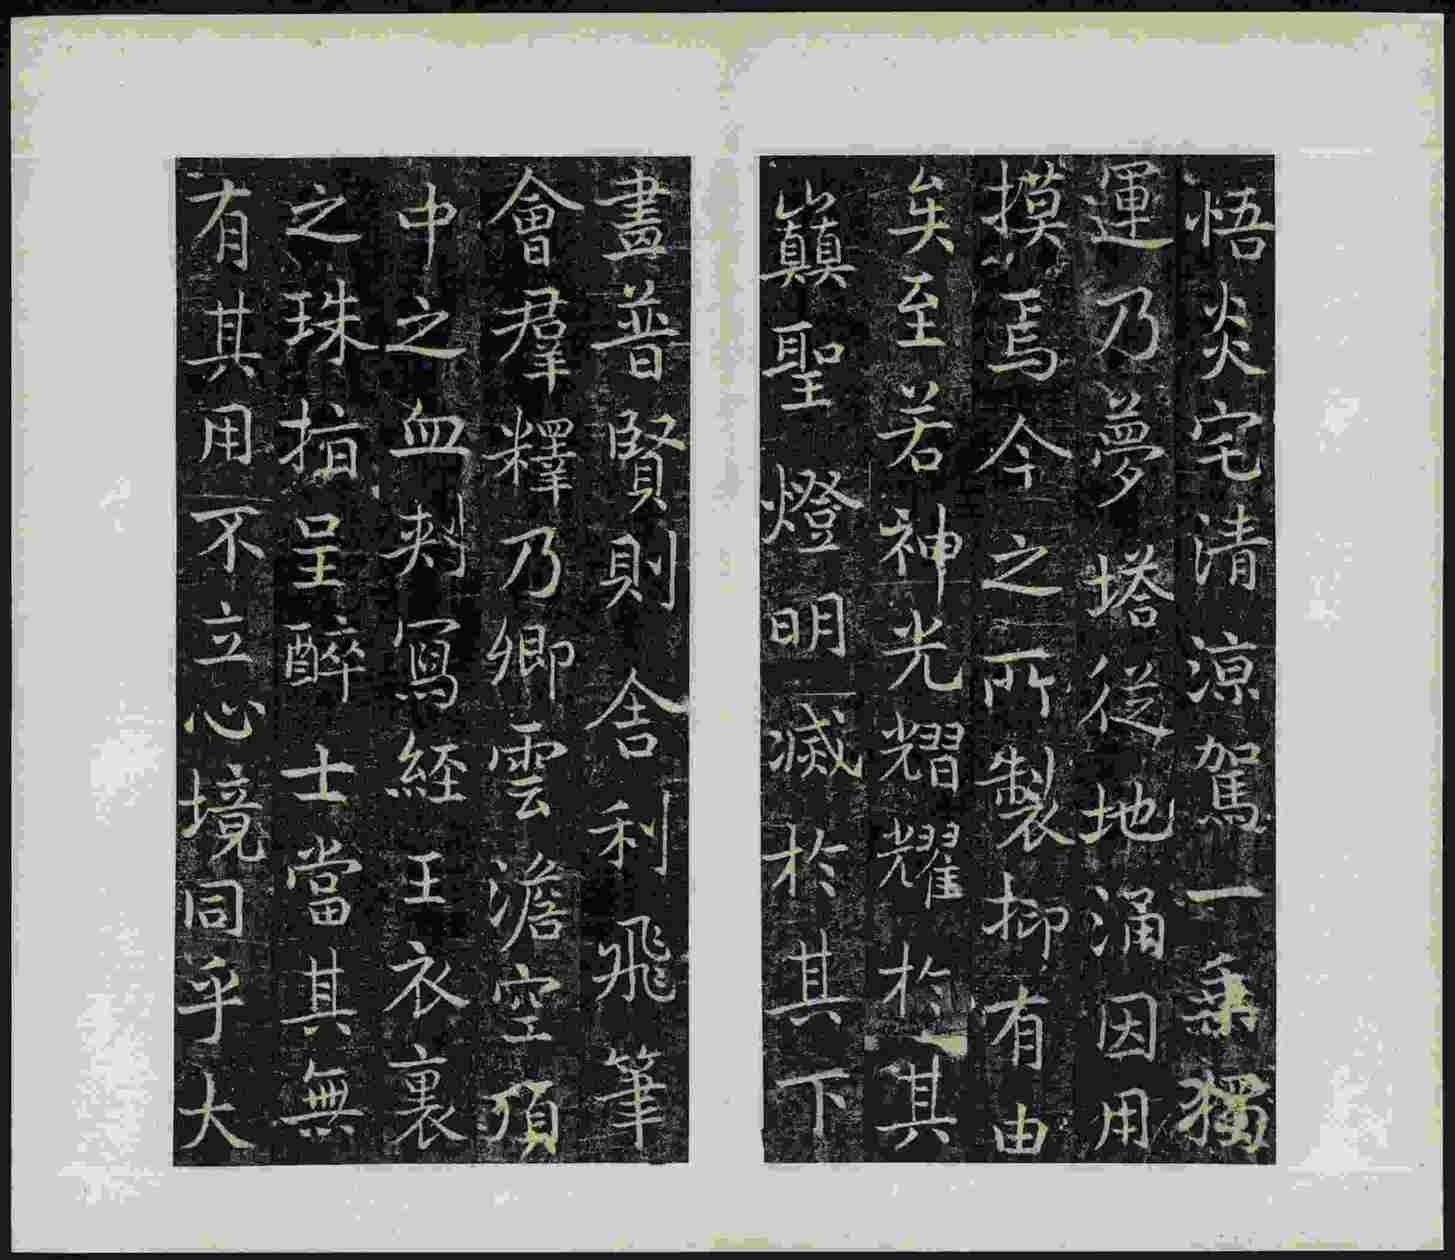 悟炎宅清涼駕一乘獨
運乃夢塔從地涌因用
摸焉今之所製抑有由
矣至若神光熠耀於其
巔聖燈明滅於其下
畫普賢則舍利飛筆
會羣釋乃卿雲澹空頂
中之血刺寫經王衣裏
之珠指呈醉士當其無
有其用不立心境同乎大